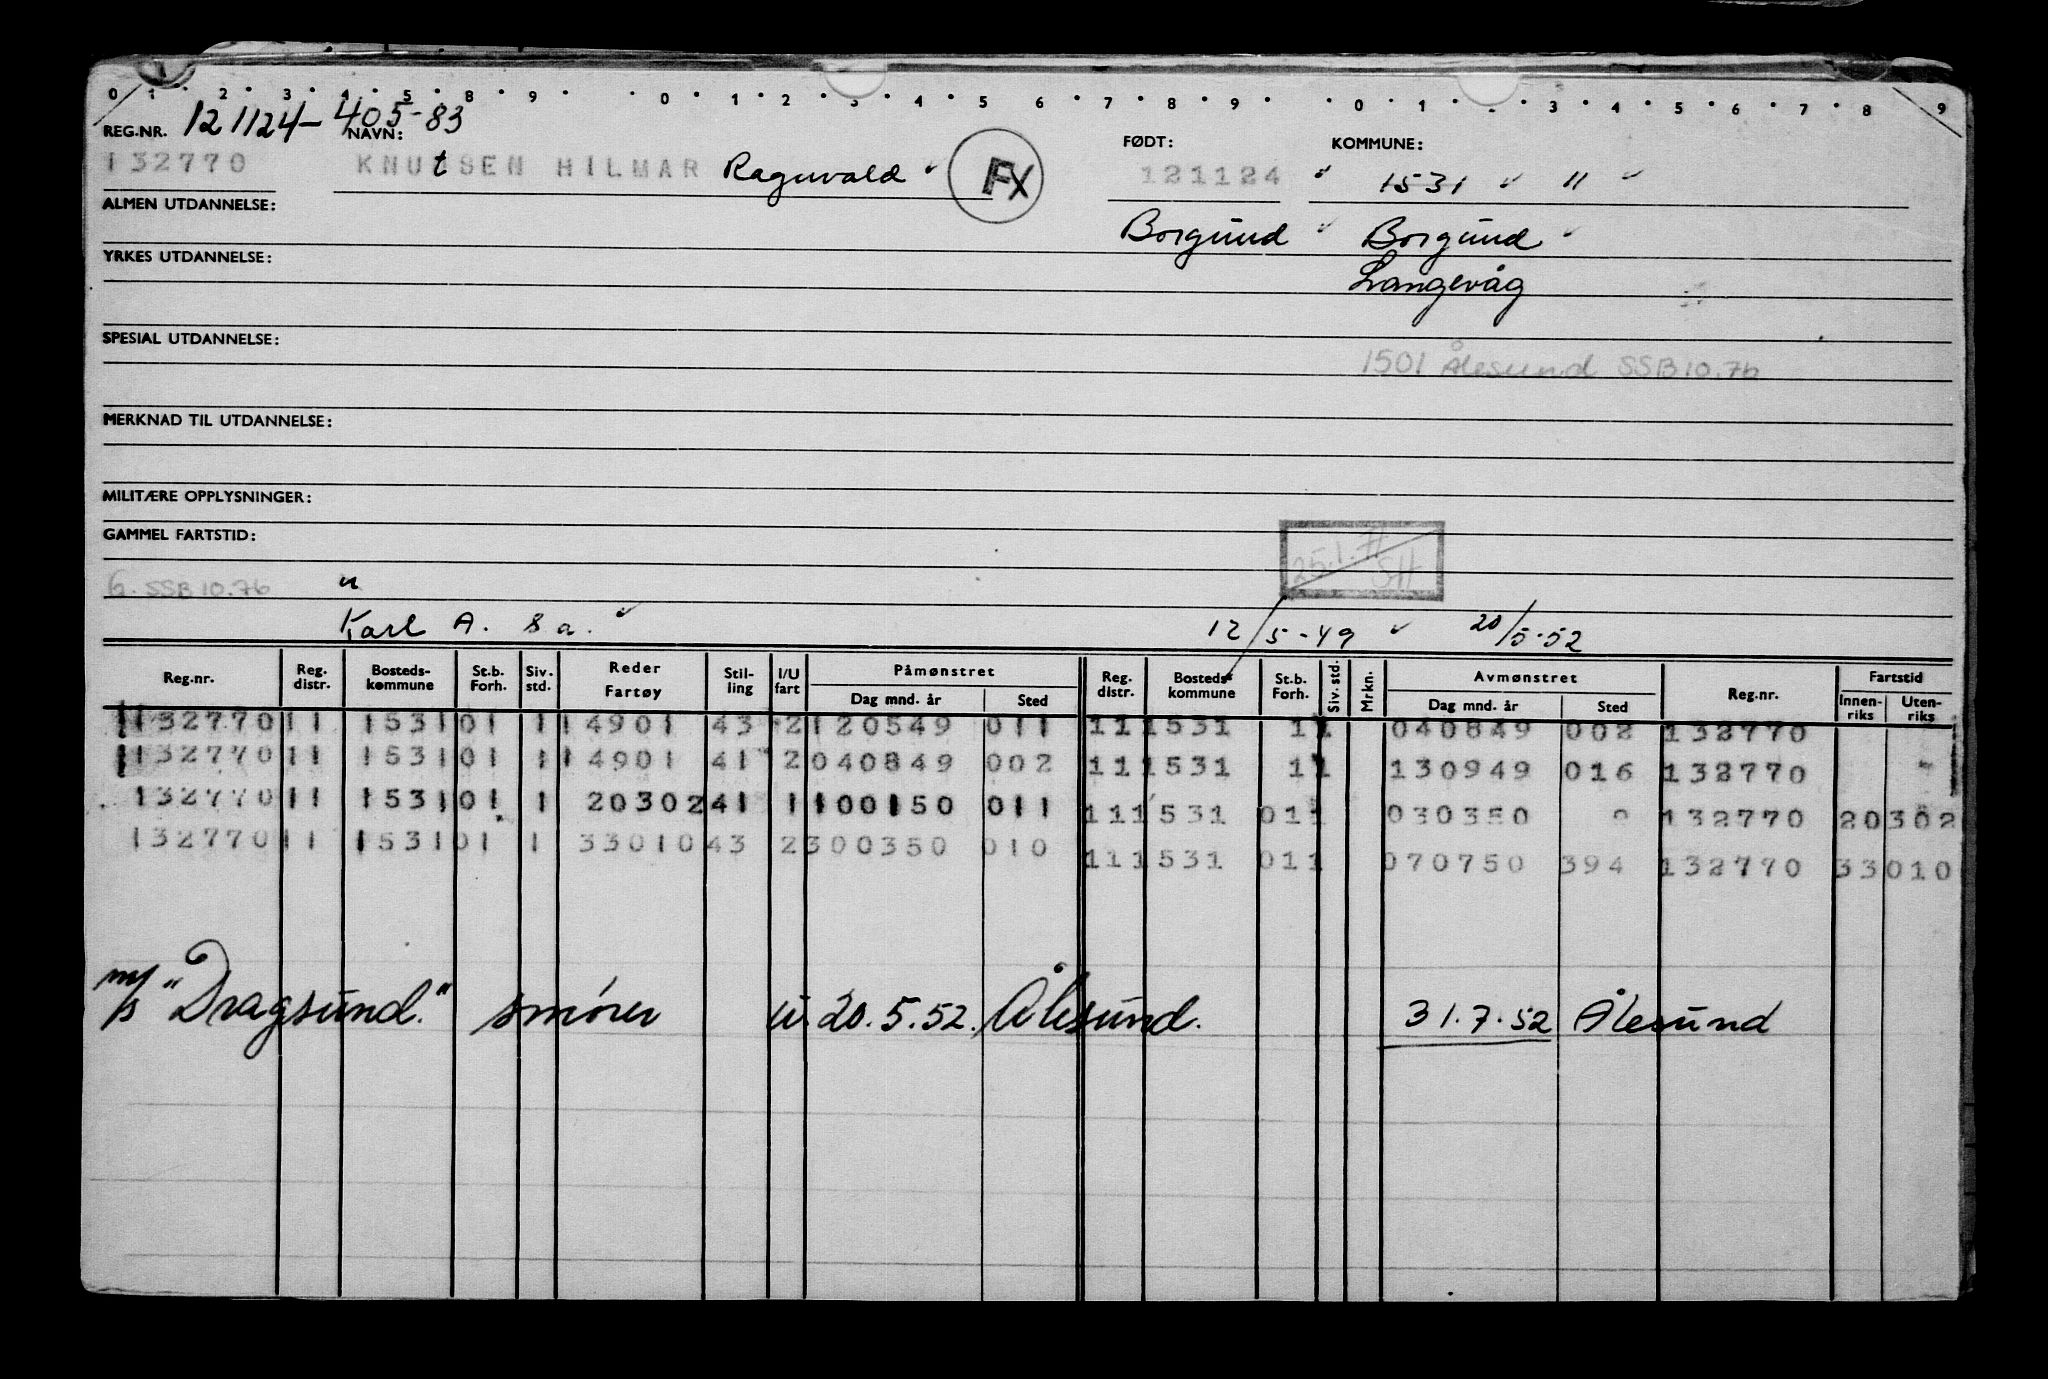 0 1 2 3 4 5 8 9 0 1 2 3 4 5 6 7 8 9 0 1 3 4 5 6 7 8 9
REG.NR. 121124-405-83 NAVN: FØDT: KOMMUNE:
132770 KNUtSEN HILMAR Ragnvald FX 121124 1531 11
ALMEN UTDANNELSE: Borgund Borgund
YRKES UTDANNELSE: Langevåg
SPESIAL UTDANNELSE:
1501 Ålesund SSB 10.76
MERKNAD TIL UTDANNELSE:
MILITÆRE OPPLYSNINGER:
GAMMEL FARTSTID:
6. SSB 10.76 "
Karl A. 8 a. 12/5-49 20/5-52
Reg.nr. Reg. distr. Bosteds-kommune St.b. Forh. Siv. std. Reder Fartøy Stil-ling I/U fart Påmønstret Dag mnd. år Sted Reg. distr. Bosteds-kommune St.b. Forh. Siv. std. Mrkn. Avmønstret Dag mnd. år Sted Reg.nr. Fartstid Innen-riks Uten-riks
132770 11 1531 01 1 14901 43 2 120549 011 11 1531 1 1 040849 002 132770
132770 11 1531 01 1 14901 41 2 040849 002 11 1531 1 1 130949 016 132770
132770 11 1531 01 1 20302 41 1 100150 011 11 1531 01 1 030350 132770 20302
132770 11 1531 01 1 33010 43 2 300350 010 11 1531 01 1 070750 394 132770 33010
m/s "Dragsund." smører u. 20.5.52. Ålesund. 31.7.52 Ålesund